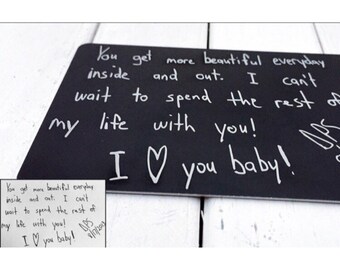 You get more beautiful everyday
inside and out. I can't
wait to spend the rest of
my life with you!
I ♡ you baby!
You get more beautiful everyday
inside and out. I can't
wait to spend the rest of
my life with you!
I ♡ you baby!